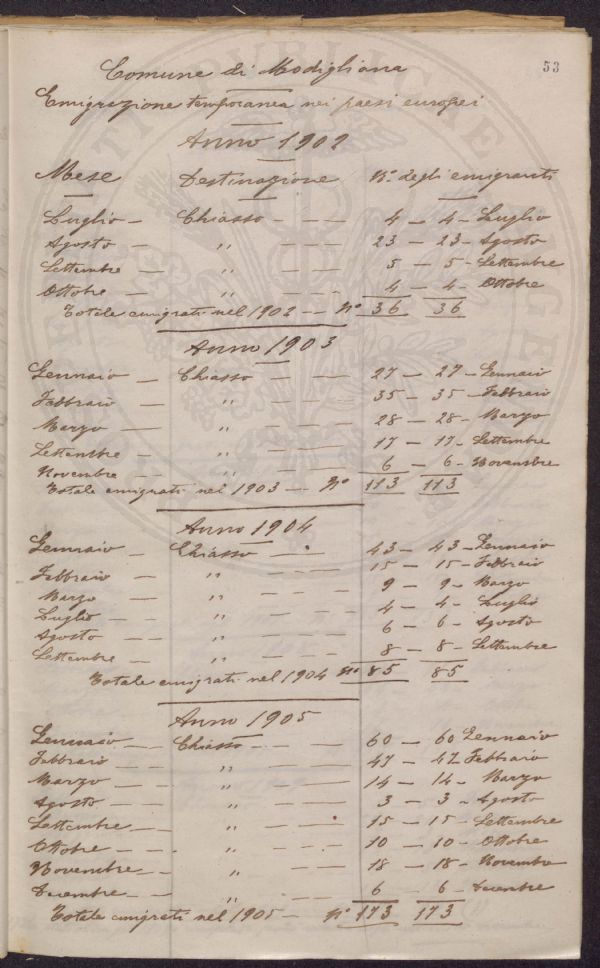 53
Comune di Modigliana
Emigrazione temporanea nei paesi europei
Anno 1902
Mese Destinazione N.º degli emigranti
Luglio — Chiasso — — — 4 — 4 — Luglio
Agosto — „ — — — 23 — 23 — Agosto
Settembre — „ — — — 5 — 5 — Settembre
Ottobre — „ — — — 4 — 4 — Ottobre
Totale emigrati nel 1902 — Nº 36 36
Anno 1903
Gennaio — Chiasso — — — 27 — 27 — Gennaio
Febbraio — „ — — — 35 — 35 — Febbraio
Marzo — „ — — — 28 — 28 — Marzo
Settembre — „ — — — 17 — 17 — Settembre
Novembre — „ — — — 6 — 6 — Novembre
Totale emigrati nel 1903 — Nº 113 113
Anno 1904
Gennaio — Chiasso — — — 43 — 43 — Gennaio
Febbraio — „ — — — 15 — 15 — Febbraio
Marzo — „ — — — 9 — 9 — Marzo
Luglio — „ — — — 4 — 4 — Luglio
Agosto — — „ — — — 6 — 6 — Agosto
Settembre — „ — — — 8 — 8 — Settembre
Totale emigrati nel 1904 Nº 85 85
Anno 1905
Gennaio — — Chiasso — — — 60 — 60 Gennaio
Febbraio — — „ — — — 47 — 47 Febbraio
Marzo — — „ — — — 14 — 14 — Marzo
Agosto — — „ — — — 3 — 3 — Agosto
Settembre — — „ — — — 15 — 15 — Settembre
Ottobre — — „ — — — 10 — 10 — Ottobre
Novembre — — „ — — — 18 — 18 — Novembre
Decembre — — „ — — — 6 — 6 — Decembre
Totale emigrati nel 1905 — Nº 173 173